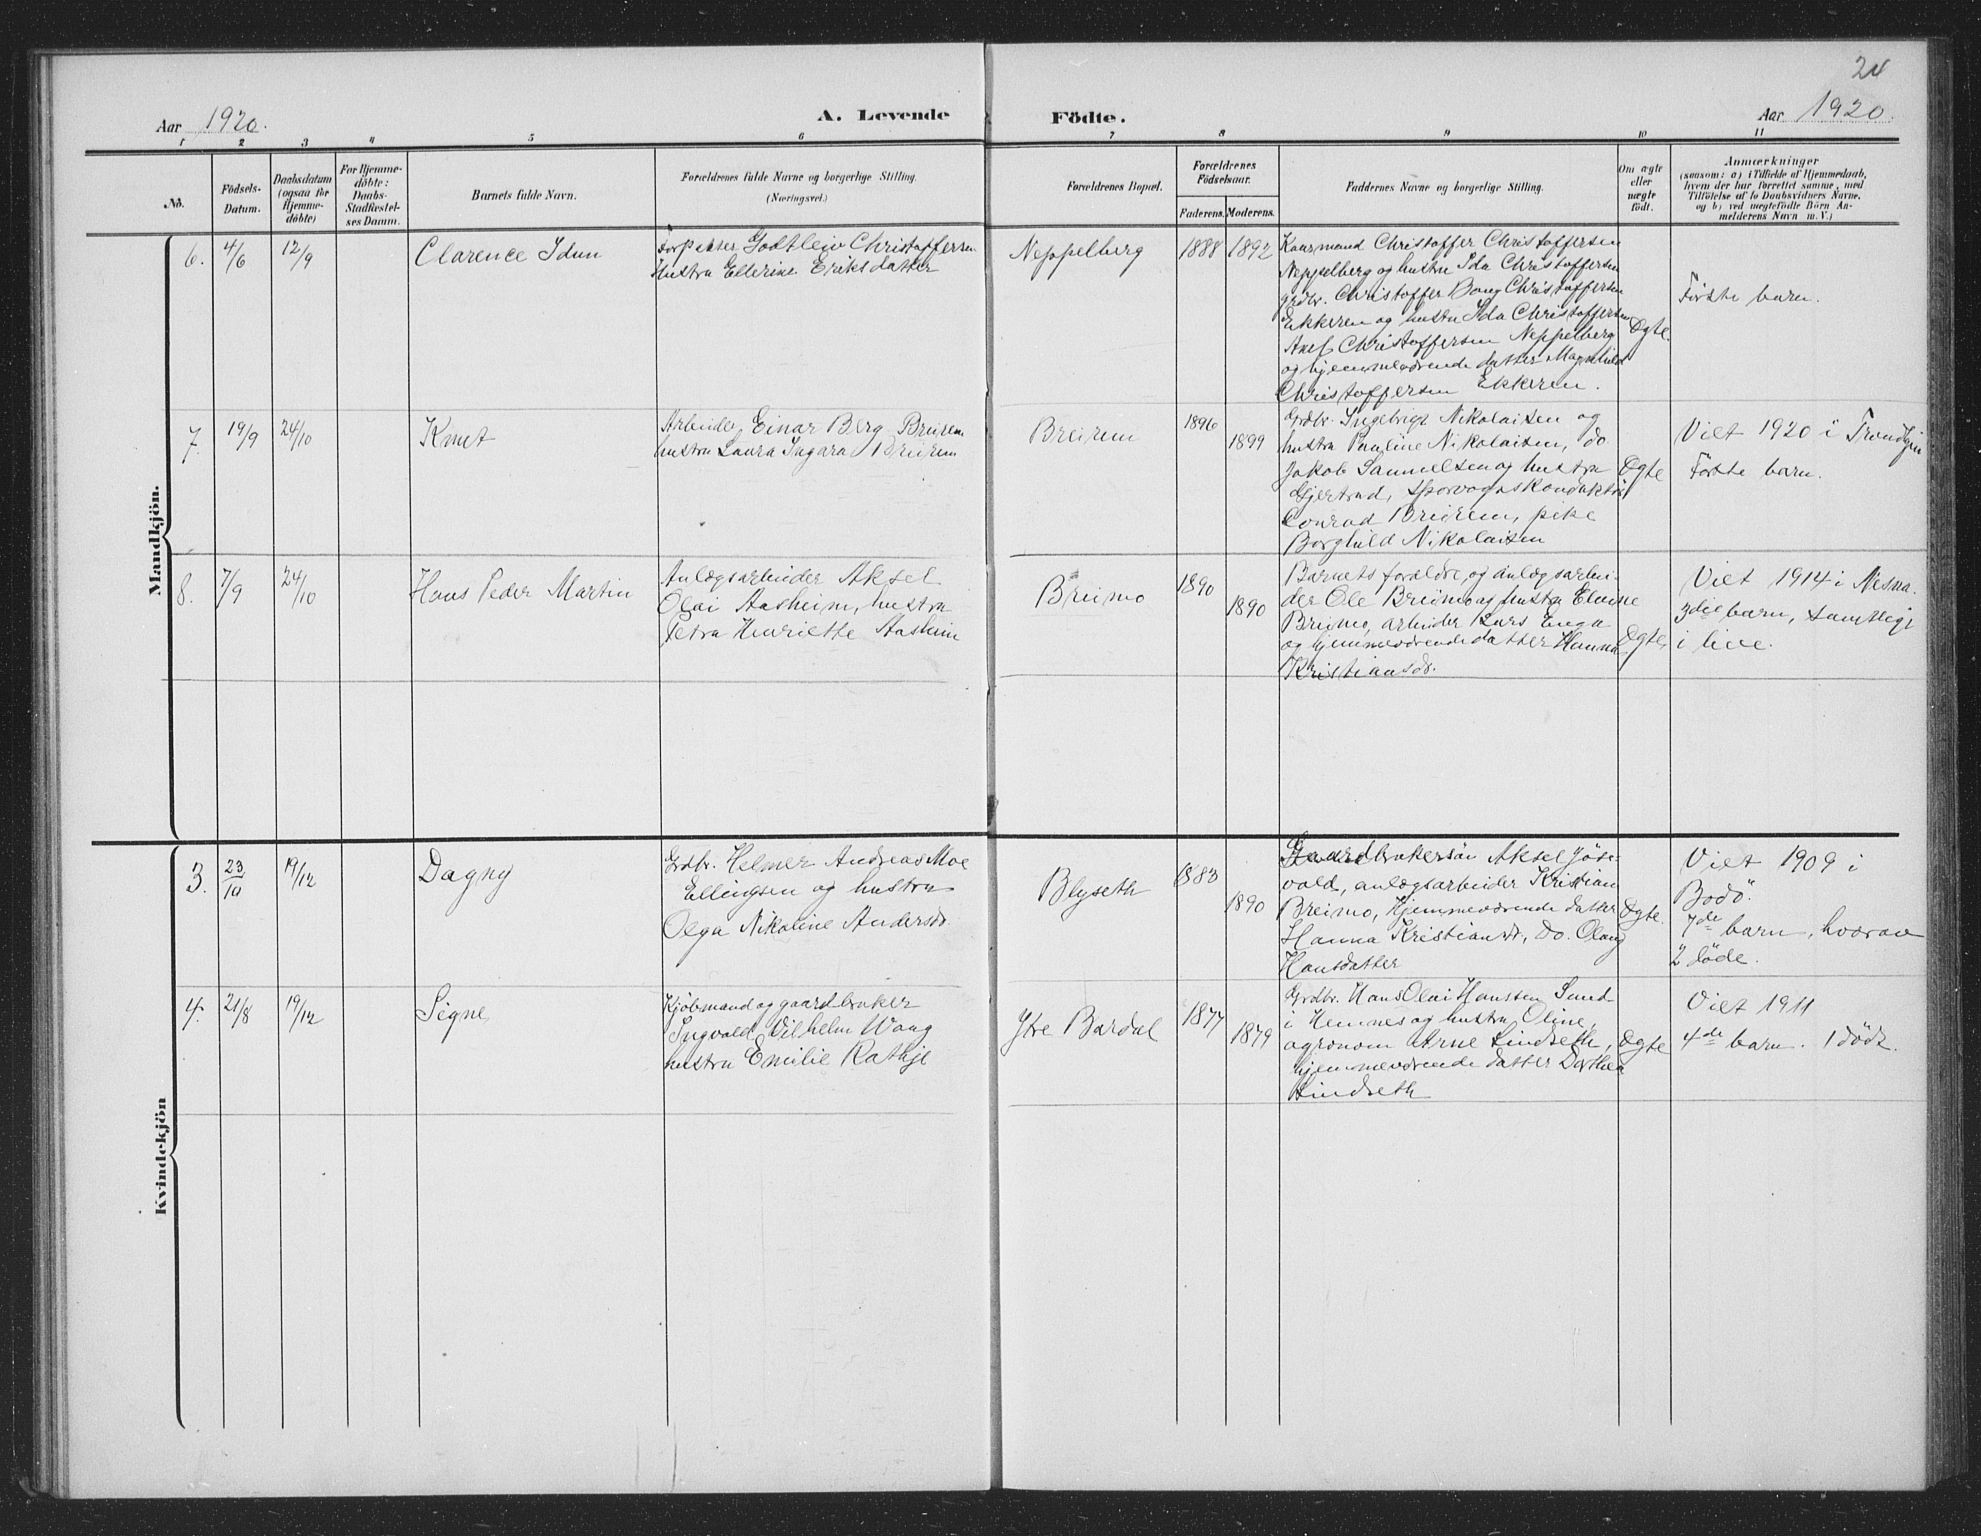 24
Aar 1920.
A. Levende
Födte.
Aar 1920.
1 2 3 4 5 6 7 8 9 10 11
No.
Födsels-
Datum.
Daabsdatum
(ogsaa for
Hjemme-
döbte)
For Hjemme-
döbte:
Daabs-
Stadfæstel-
ses Datum.
Barnets fulde Navn.
Forældrenes fulde Navne og borgerlige Stilling.
(Næringsvei.)
Forældrenes Bopæl.
Forældrenes
Födselsaar.
Faderens. Moderens.
Faddernes Navne og borgerlige Stilling.
Om ægte
eller
uægte
födt.
Anmærkninger
(saasom: a) i Tilfælde af Hjemmedaab,
hvem der har forrettet samme, med
Tilföielse af to Daabsvidners Navne,
og b) ved uægtefödte Börn An-
melderens Navn m. V.)
Mandkjön.
6.
4/6
12/9
Clarence Idun
Godtleiv Christoffersen
hustru Ellerine Eriksdatter
Neppelberg
1888
1892
Kaarmand Christoffer Christoffersen
Neppelberg og hustru Ida Christoffersen
grdbr. Christoffer Bang Christoffersen
Ekkeren og hustru Ida Christoffersen
Axel Christoffersen Neppelberg
og hjemmeværende datter Magnhild
Christoffersen Ekkeren.
Ægte.
Förste barn.
7.
19/9
24/10
Knut
Arbeider Einar Berg Breirem
hustru Laura Ingara Breirem
Breirem
1896
1899
Grdbr. Ingebrigt Nikolaisen og
hustru Pauline Nikolaisen, do
Jakob Samuelsen og hustru
Gjertrud, sporvognskonduktör
Conrad Breirem, pike
Borghild Nikolaisen
Ægte
Viet 1920 i Trondhjem
Förste barn.
8.
7/9
24/10
Hans Peder Martin
Anlægsarbeider Aksel
Olai Aasheim, hustru
Petra Henriette Aasheim
Breimo
1890
1890
Barnets forældre, og anlægsarbei-
der Ole Breimo og hustru Elvine
Breimo, arbeider Lars Enga
og hjemmeværende datter Hanna
Kristiansdr.
Ægte,
Viet 1914 i Nesna.
3die barn, samtlige
i live.
Kvindekjön
3.
23/10
19/12
Dagny
Grdbr. Helmer Andreas Moe
Ellingsen og hustru
Olga Nikoline Andersdr.
Blyseth
1883
1890
Gaardbrukersön Aksel Jöse-
vold, anlægsarbeider Kristian
Breimo, Hjemmeværende datter
Hanna Kristiansdr, do. Olaug
Hansdatter
Ægte.
Viet 1909 i
Bodö.
7de barn, hvorav
2 döde.
4.
21/8
19/12
Signe
Kjöbmand og gaardbruker
Ingvald Vilhelm Wang
hustru Emilie Rathje
Ytre Bardal
1877
1879
Grdbr. Hans Olai Hanssen Sund
i Hemnes og hustru Oline,
agronom Arne Lindseth,
hjemmeværende datter Dorthea
Lindseth
Ægte
Viet 1911
4de barn. 1 död.